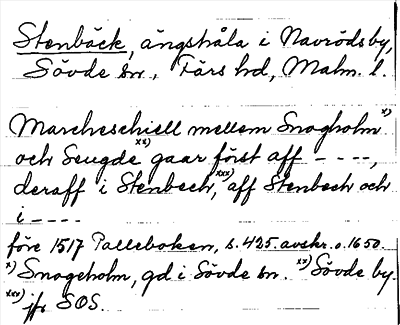 Stenbäck, ängshåla i Navrödsby,
Sövde sn., Färs hd, Malm. l.
Marcheschiell mellem Snogholm x)
och Seugde xx) gaar först aff – – – –,
deraff i Stenbech, xxx) aff Stenbech och
i – – – –
före 1517 Palleboken, s. 425. avskr. o. 1650.
x) Snogeholm, gd i Sövde sn. xx) Sövde by.
xxx) jfr SOS.